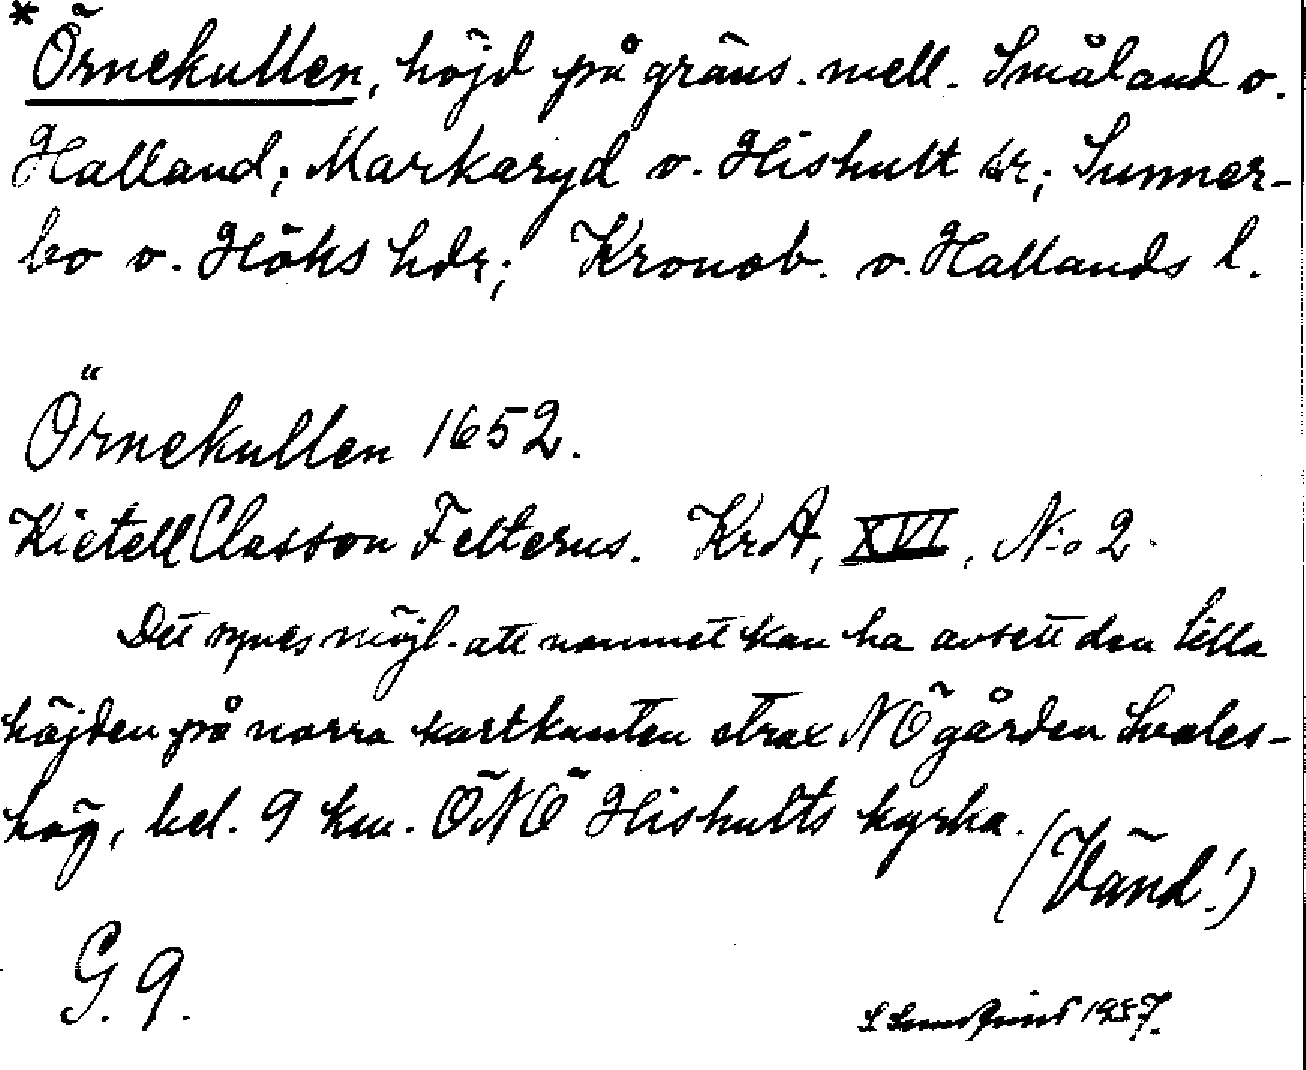 *Örnekullen, höjd på gräns. mell. Småland o.
Halland; Markaryd o. Hishult sr; Sunner-
bo o. Höks hdr; Kronob. o. Hallands l.
Örnekullen 1652.
Kietell Classon Felterus. KrA, XVI, N:o 2.
Det synes möjl. att namnet kan ha avsett den lilla
höjden på norra kartkanten strax NÖ gården Svales-
hög, bel. 9 km. ÖNÖ Hishults kyrka.
(Vänd!)
G. 9.
1937.